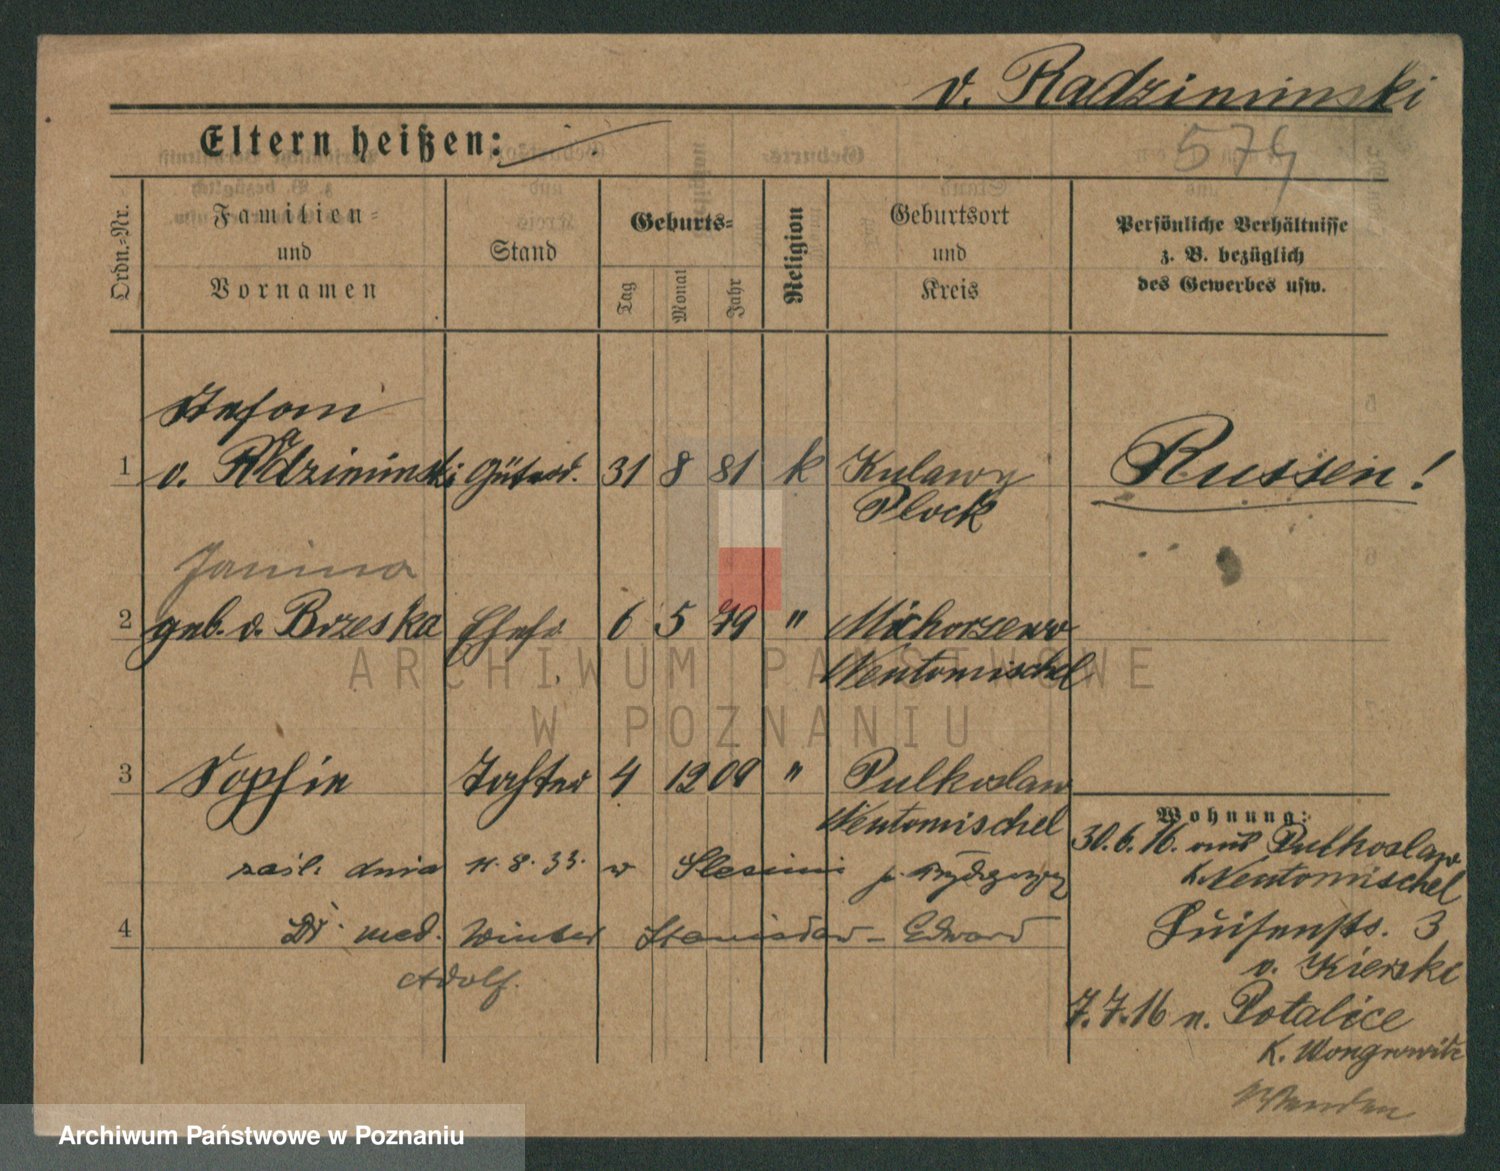 v. Radziminski
Eltern heißen:
579
Ordn.-Nr.
Familien-
und
Vornamen
Stand
Geburts-
Tag
Monat
Jahr
Religion
Geburtsort
und
Kreis
Persönliche Verhältnisse
z. B. bezüglich
des Gewerbes usw.
Stefan
1 v. Radziminski 31 8 81 k Kulawy
Plock
Russen!
Janina
2 geb. v. Brzeska Ehefr 6 5 79 " Michorzewo
Neutomischel
3 Sophie Tochter 4 12 09 " Pulkoslaw
Neutomischel
zaśl. dnia 11. 8. 33. w p. Bydgoszczy
4 Dr med. Winter Stanisław - Edward
Adolf.
Wohnung:
30.6.16. aus Pulkoslaw
k. Neutomischel
Luisenstr. 3
v. Kierski
7.7.16 n. Potalice
K. Wongrowitz
ARCHIWUM PAŃSTWOWE
W POZNANIU
Archiwum Państwowe w Poznaniu